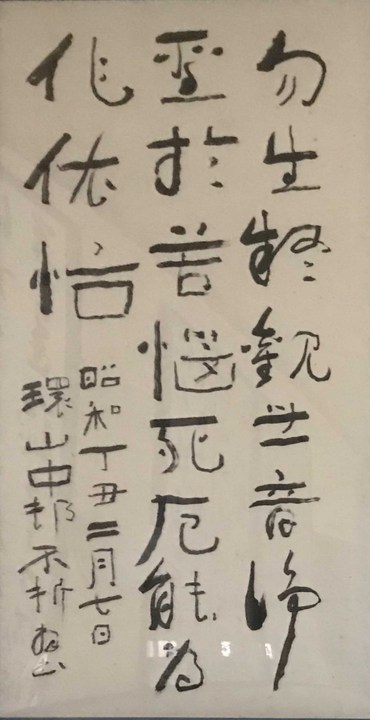 勿生疑觀世音淨
聖於苦惱死厄能為
作依怙
昭和丁丑二月七日
環山中邨不折